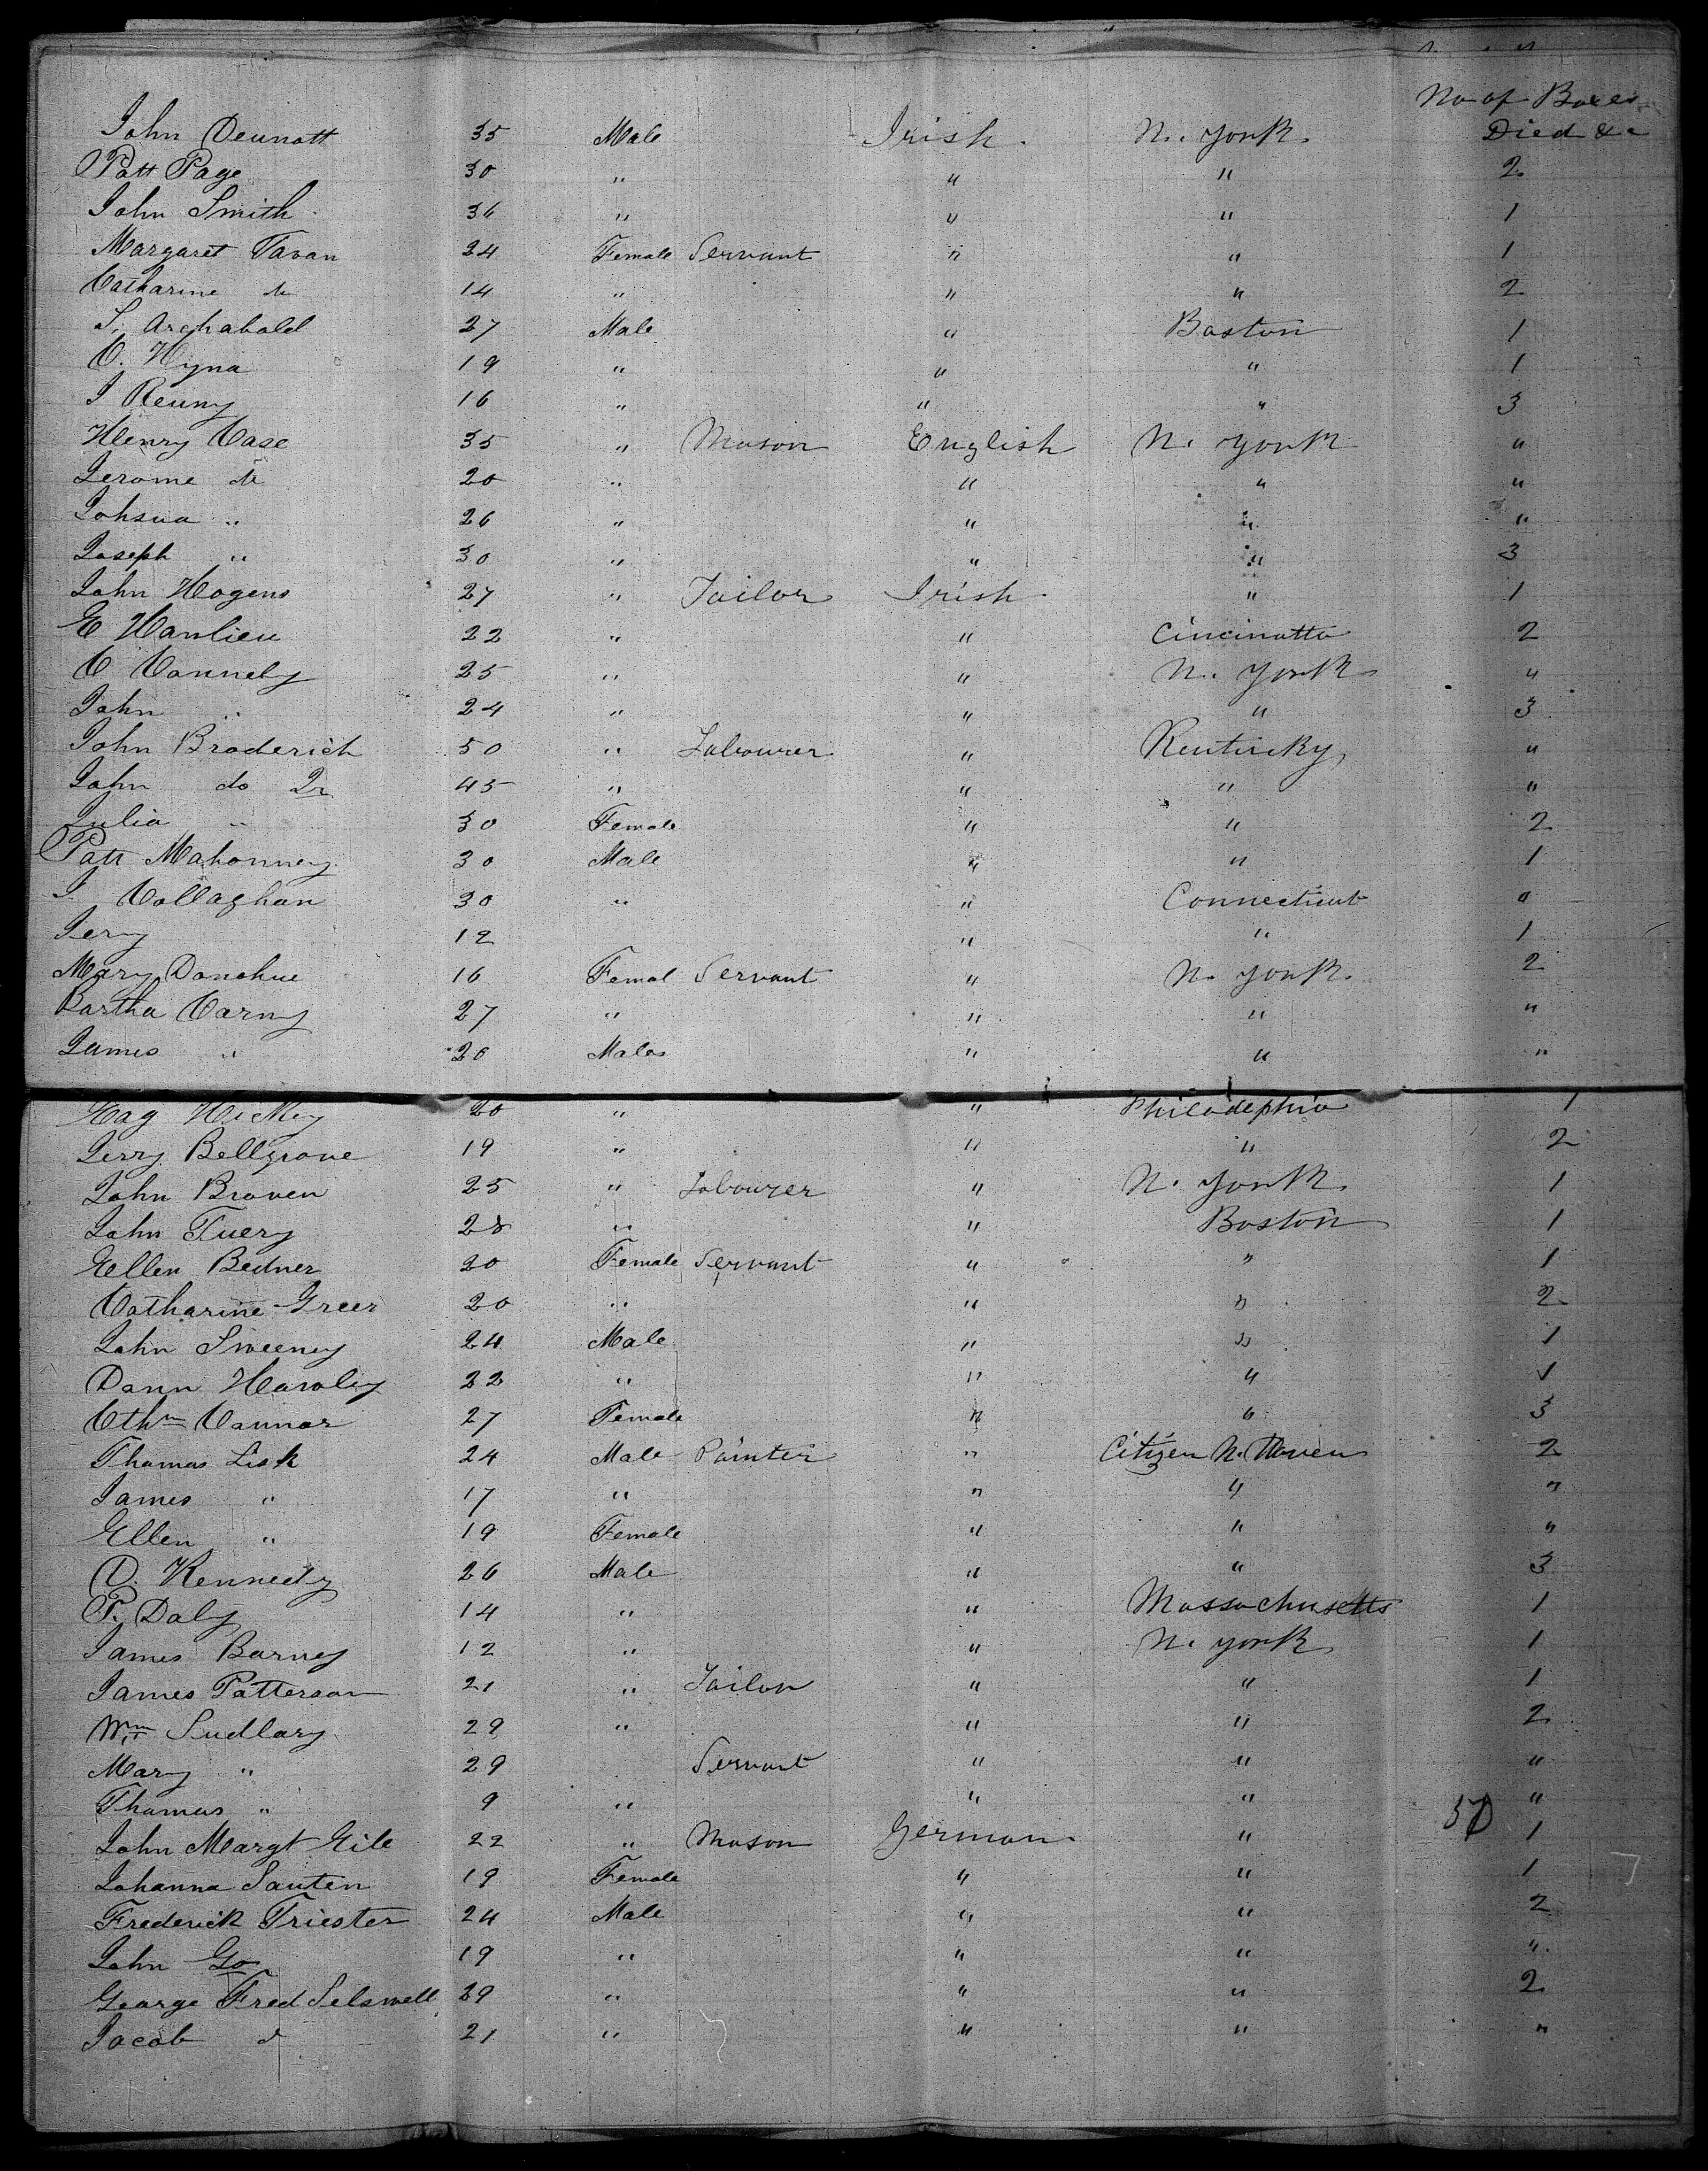 No of Boxes
John Dennott 35 Male Irish N. York Died &c
Patt Page 30 " " " 2
John Smith 36 " " " 1
Margaret Tavan 24 Female Servant " " 1
Catharine do 14 " " " 2
S. Archabald 27 Male " Boston 1
C. Hyna 19 " " " 1
J Reuny 16 " " " 3
Henry Case 35 " Mason English N. York "
Jerome do 20 " " " "
Johsua " 26 " " " "
Joseph " 30 " " " 3
John Hogens 27 " Tailor Irish " 1
E Hanlieu 22 " " Cincinatta 2
C Connely 25 " " N. York "
John " 24 " " " 3
John Broderich 50 " Labourer " Kentucky "
John do Jr 45 " " " "
Julia " 30 Female " " 2
Patt Mahonney 30 Male " " 1
J. Collaghan 30 " " Connecticut "
Jery 12 " " 1
Mary Donohue 16 Femal Servant " N. York 2
Bartha Carny 27 " " " "
James " 20 Males " " "
Hag Hickey 20 " " Philadephia 1
Jerry Bellgrove 19 " " " 2
John Broven 25 " Labourer " N. York 1
John Tuery 28 " " Boston 1
Ellen Bedner 20 Female Servant " " 1
Catharine Greer 20 " " " 2
John Sweeney 24 Male " " 1
Dann Hawley 22 " " " 1
Cthn Connor 27 Female " " 3
Thomas Lisk 24 Male Painter " Citizen N. Haven 2
James " 17 " " " "
Ellen " 19 Female " " "
D. Kennedy 26 Male " " 3
P. Daly 14 " " Massachusetts 1
James Barney 12 " " N. York 1
James Patterson 21 " Tailor " " 1
Wm Sudlary 29 " " " 2
Mary " 29 Servant " " "
Thomas " 9 " " " "
50
John Margt Eile 22 " Mason German " 1
Johanna Sauten 19 Female " " 1
Frederick Triester 24 Male " " 2
John Go 19 " " " "
George Fred Selswell 29 " " " 2
Jacob do 21 " " " "